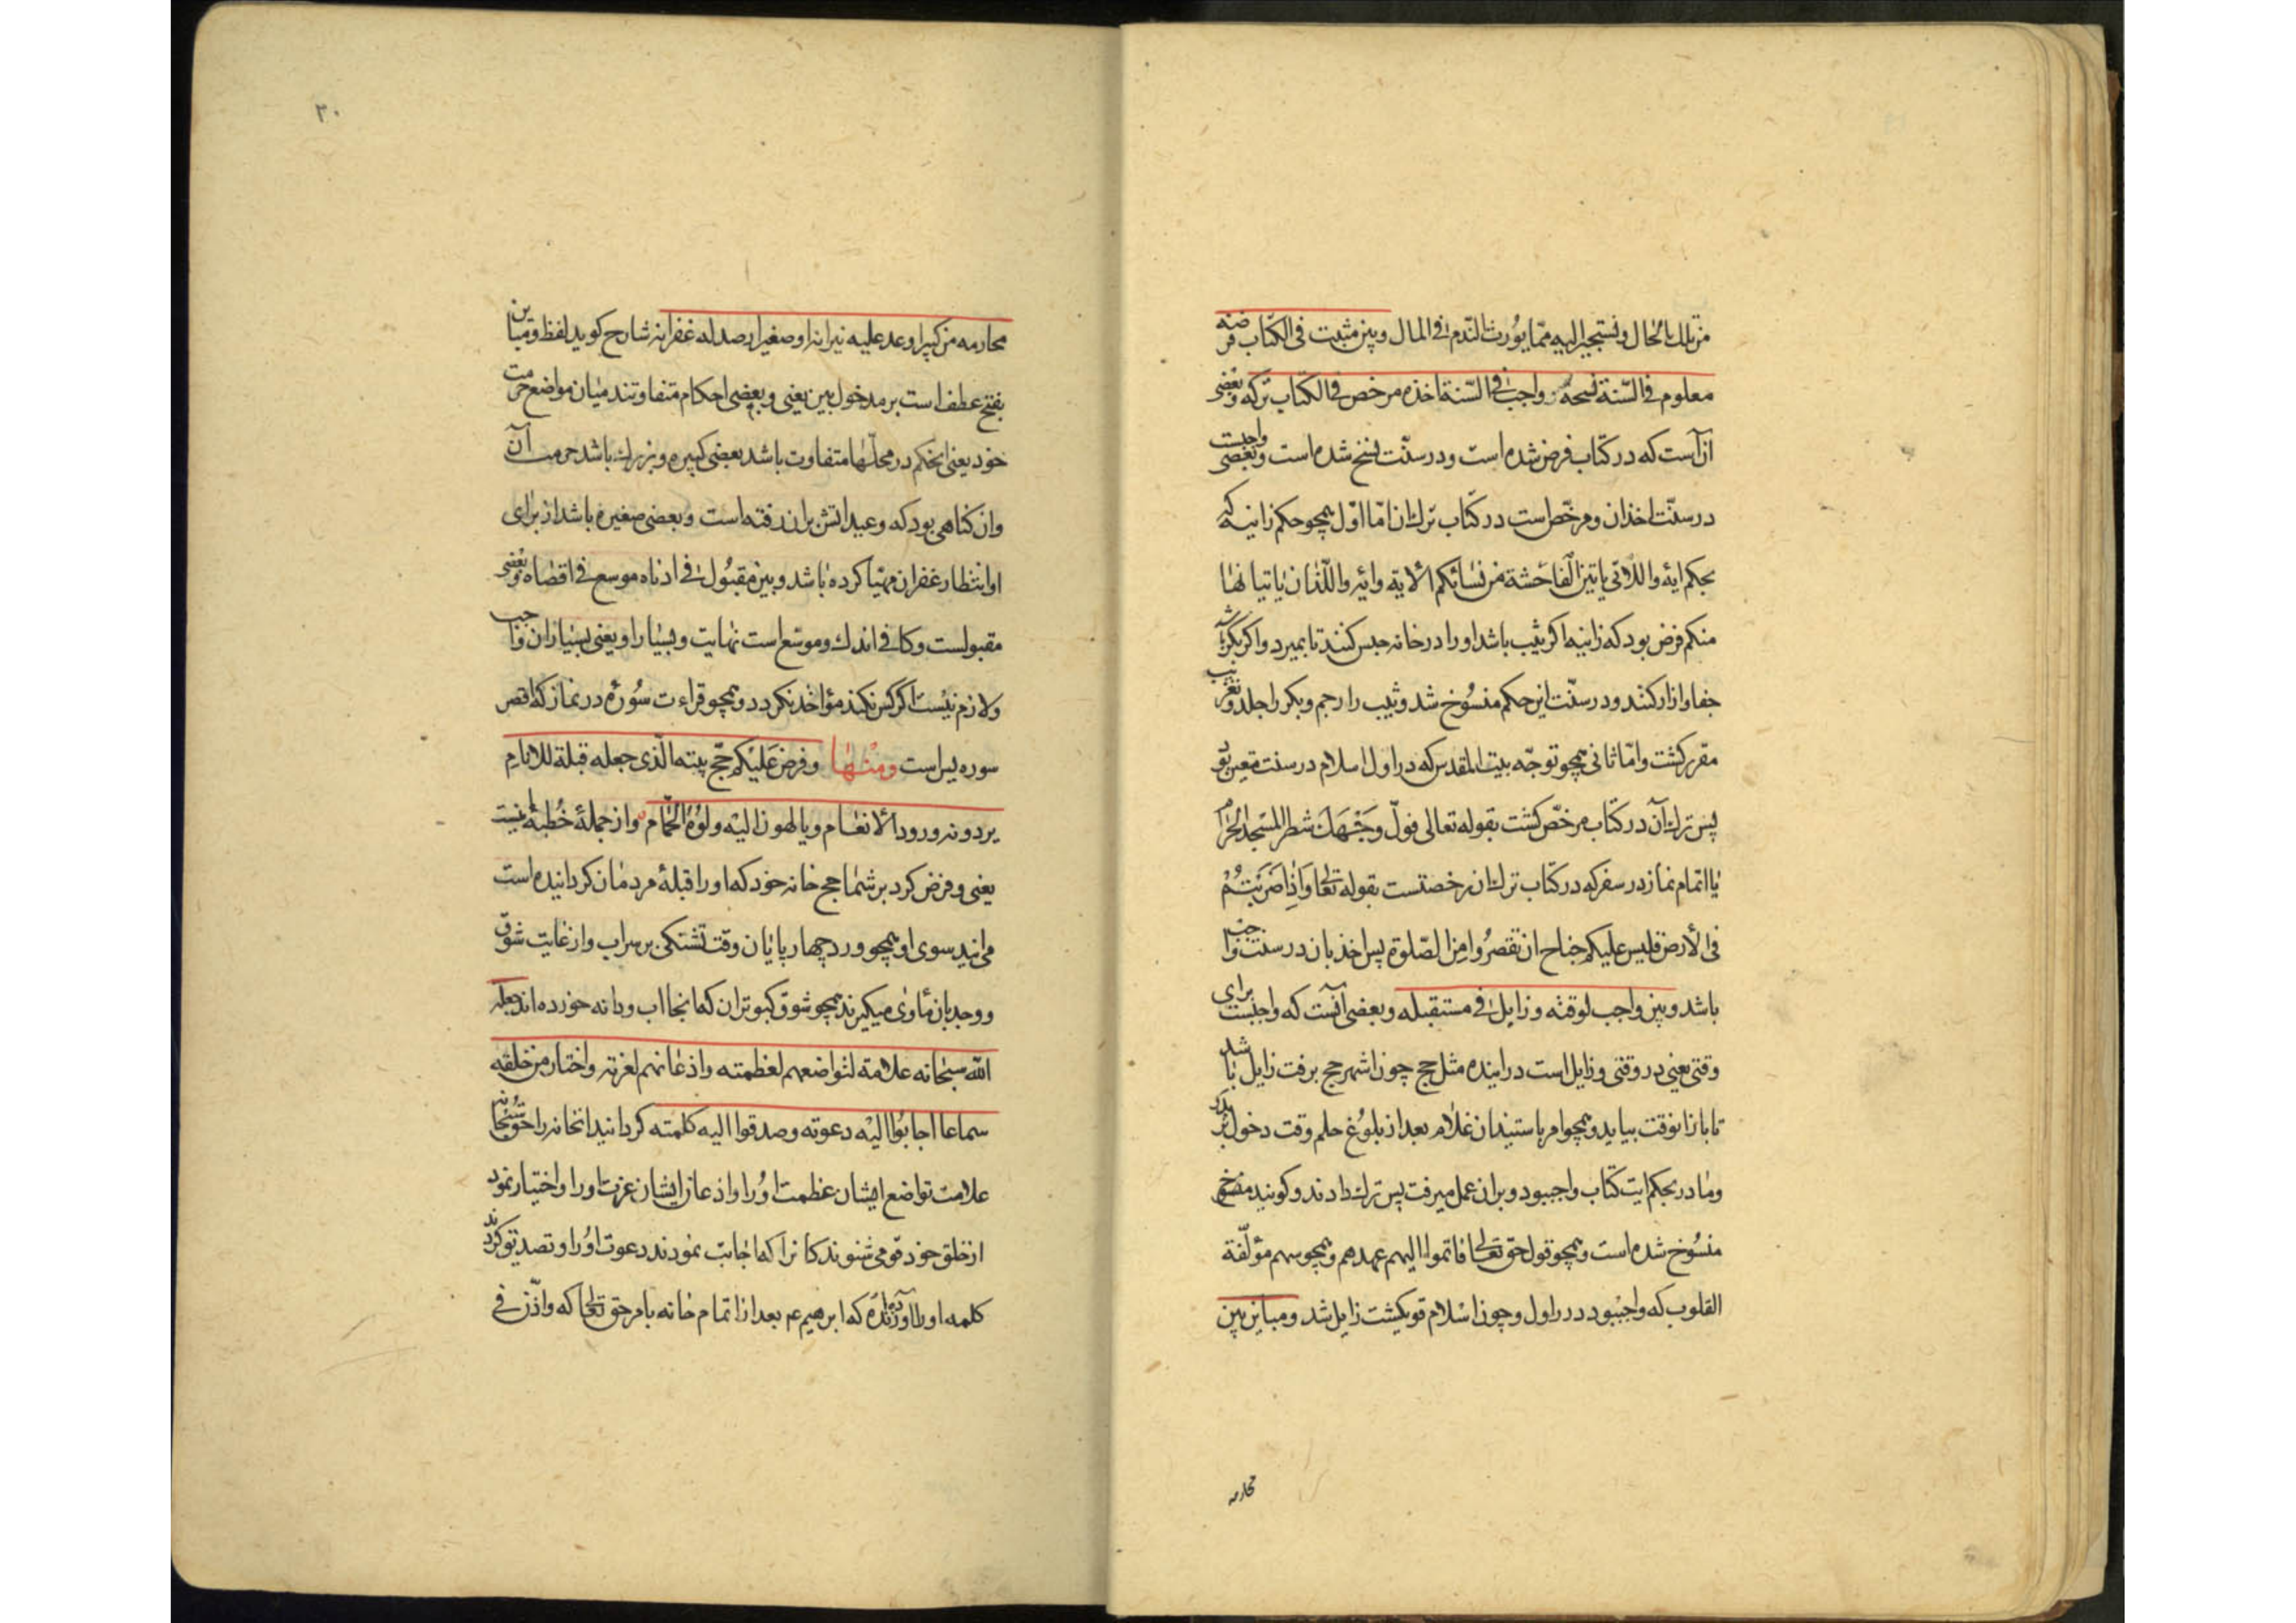 من تلك الحال ونستجير اليه مما يورث الندم فى المال وبين مثبت فى الكتاب فرضه
معلوم فى السنة نسخه وواجب فى السنة اخذه مرخص فى الكتاب تركه وبعضى
از آنست كه در كتاب فرض شده است ودر سنّت نسخ شده است وبعضى واجبست
در سنّت اخذ ان ومرخّص است در كتاب ترك ان امّا اوّل همچو حكم زانيه كه
بحكم ايه واللاتى ياتين الفاحشة من نسائكم الآية وايه واللّذان ياتيانها
منكم فرض بود كه زانيه اكر ثيب باشد او را در خانه حبس كنند تا بميرد واكر بكر باشد
جفا وازار كنند ودر سنّت اين حكم منسوخ شد وثيب را رجم وبكر را جلد وتغريب
مقرر كشت وامّا ثانى همچو توجّه بيت المقدس كه در اول اسلام در سنت معين بود
پس ترك آن در كتاب مرخّص كشت بقوله تعالى فولّ وجهك شطر المسجد الحرام
يا اتمام نماز در سفر كه در كتاب ترك ان رخصتست بقوله تعالى واذا ضربتم
فى الأرض فليس عليكم جناح ان تقصروا من الصّلوة پس اخذ بان در سنت واجب
باشد وبين واجب لوقته وزايل فى مستقبله وبعضى آنست كه واجبست براى
وقتى يعنى در وقتى وزايل است در اينده مثل حج چون اشهر حج برفت زايل باشد
تا باز انوقت بيايد وهمچو امر باستيذان غلام بعد از بلوغ حلم وقت دخول بر پدر
ومادر بحكم ايت كتاب واجببود وبران عمل ميرفت پس ترك دادند وكويند منسوخ
منسوخ شده است وهمچو قول حق تعالى فاتموا اليهم عهدهم وهمچو سهم مؤلّفة
القلوب كه واجببود در اول وچون اسلام قوى كشت زايل شد ومباين بين
محارمه
٣٠
محارمه من كبير اوعد عليه نيرانه او صغير ارصد له غفرانه شارح كويد لفظ ومباين
بفتح عطف است بر مدخول بين يعنى وبعضى احكام متفاوتند ميان مواضع حرمت
خود يعنى ان حكم در محلّها متفاوت باشد بعضى كبيره وبزرك باشد حرمت آن
وان كناهى بود كه وعيد اتش بران رفته است وبعضى صغيره باشد از براى
او انتظار غفران مهيّا كرده باشد وبين مقبول فى ادناه موسع فى اقصاه وبعضى
مقبولست وكافى اندك وموسّع است نهايت وبسيار او يعنى بسيار ان واجب
ولازم نيست اكر كس نكند مؤاخذ نكردد وهمچو قراءت سوره در نماز كه اقصر
سوره بس است ومنها وفرض عليكم حجّ بيته الّذى جعله قبلة للانام
يردونه ورود الأنعام ويالهون اليه ولوه الحمام وازجملهٔ خطبهٔ نيست
يعنى وفرض كرد بر شما حج خانه خود كه او را قبلهٔ مردمان كردانيده است
مى ايند سوى او همچو ورد چهار پايان وقت تشنكى بر سراب واز غايت شوق
ووجد بان مأوى ميكيرند همچو شوق كبوتران كه انجا اب ودانه خورده اند جعله
اللّه سبحانه علامة لتواضعهم لعظمته واذعانهم لعزته واختار من خلقه
سماعا اجابوا اليه دعوته وصدقوا اليه كلمته كردانيد انخانه را حق سبحانه
علامت تواضع ايشان عظمت او را واذعان ايشان عزت او را واختيار نمود
از خلق خود قومى شنوندكانرا كه اجابت نمودند دعوت او را وتصديق كردند
كلمه او را آورده اند كه ابرهيم عم بعد از اتمام خانه بامر حق تعالى كه واذّن فى